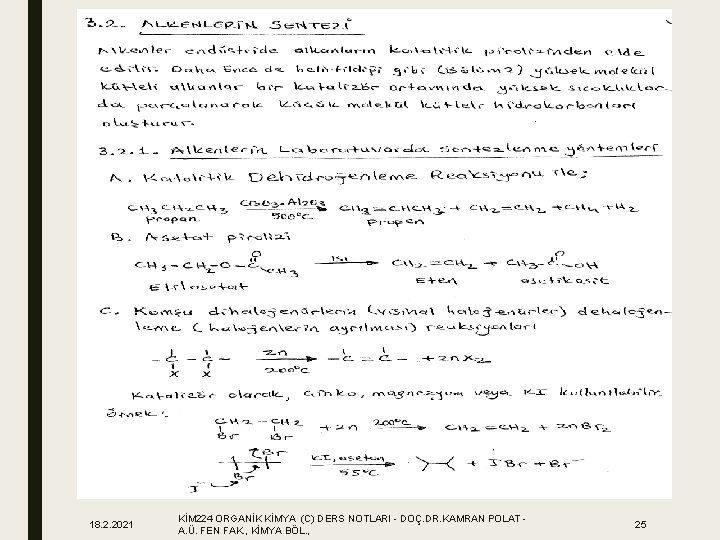 3.2. ALKENLERİN SENTEZİ
Alkenler endüstride alkanların katalitik pirolizinden elde
edilir. Daha önce de belirtildiği gibi (Bölüm 2) yüksek molekül
kütleli alkanlar bir katalizör ortamında yüksek sıcaklıklar-
da parçalanarak küçük molekül kütleli hidrokarbonları
oluşturur.
3.2.1. Alkenlerin Laboratuvarda Sentezlenme yöntemleri
A. Katalitik Dehidrojenleme Reaksiyonu ile;
CH3CH2CH3 Cr2O3-Al2O3 500°C CH2=CHCH3 + CH2=CH2 + CH4 + H2
Propan Propen
B. Asetat pirolizi
CH3-CH2-O-C(=O)-CH3 ısı CH2=CH2 + CH3-C(=O)-OH
Etilasetat Eten asetikasit
C. Komşu dihalojenürlerin (visinal halojenürler) dehalojen-
leme (halojenlerin ayrılması) reaksiyonları
-C-C- Zn 200°C -C=C- + ZnX2
X X
Katalizör olarak, çinko, magnezyum veya KI kullanılabilir.
Örnek:
CH2-CH2 + Zn 200°C CH2=CH2 + ZnBr2
Br Br
Br Br I⁻ KI, aseton 55°C + IBr + Br⁻
18.2.2021
KİM224 ORGANİK KİMYA (C) DERS NOTLARI - DOÇ.DR.KAMRAN POLAT -
A.Ü. FEN FAK., KİMYA BÖL.,
25